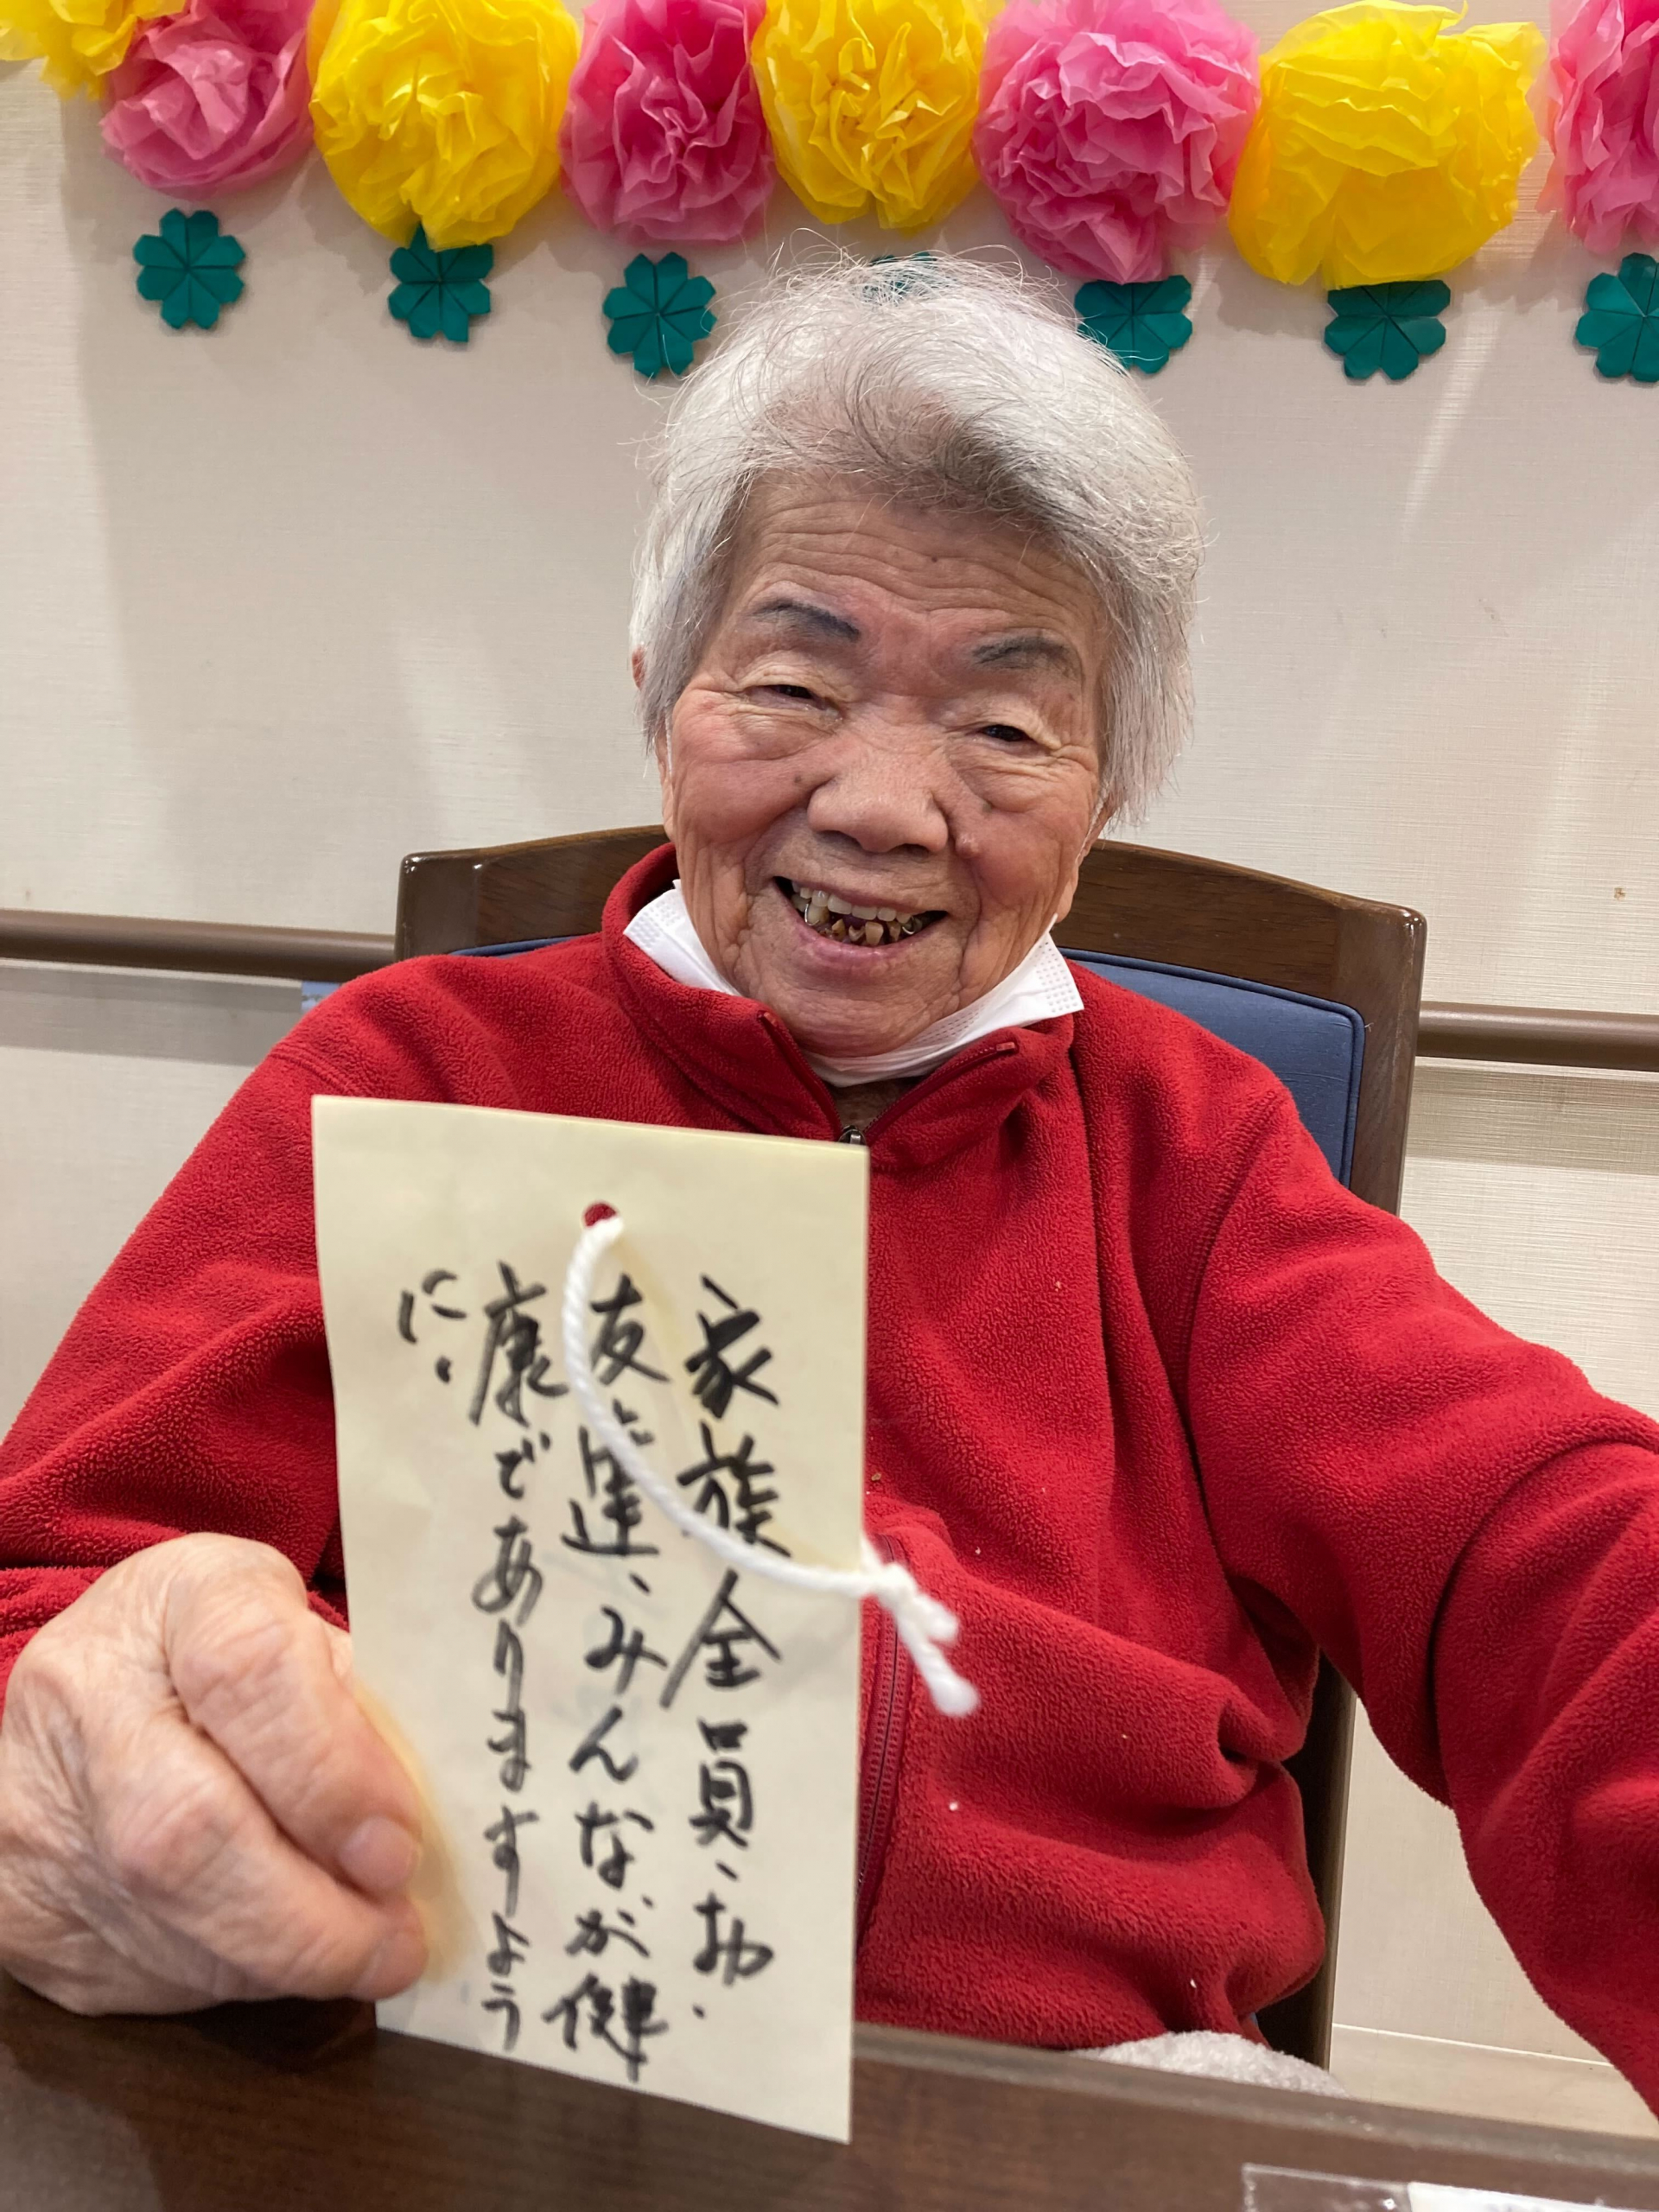 家族全員、お
友達、みんなが健
康でありますよう
に.